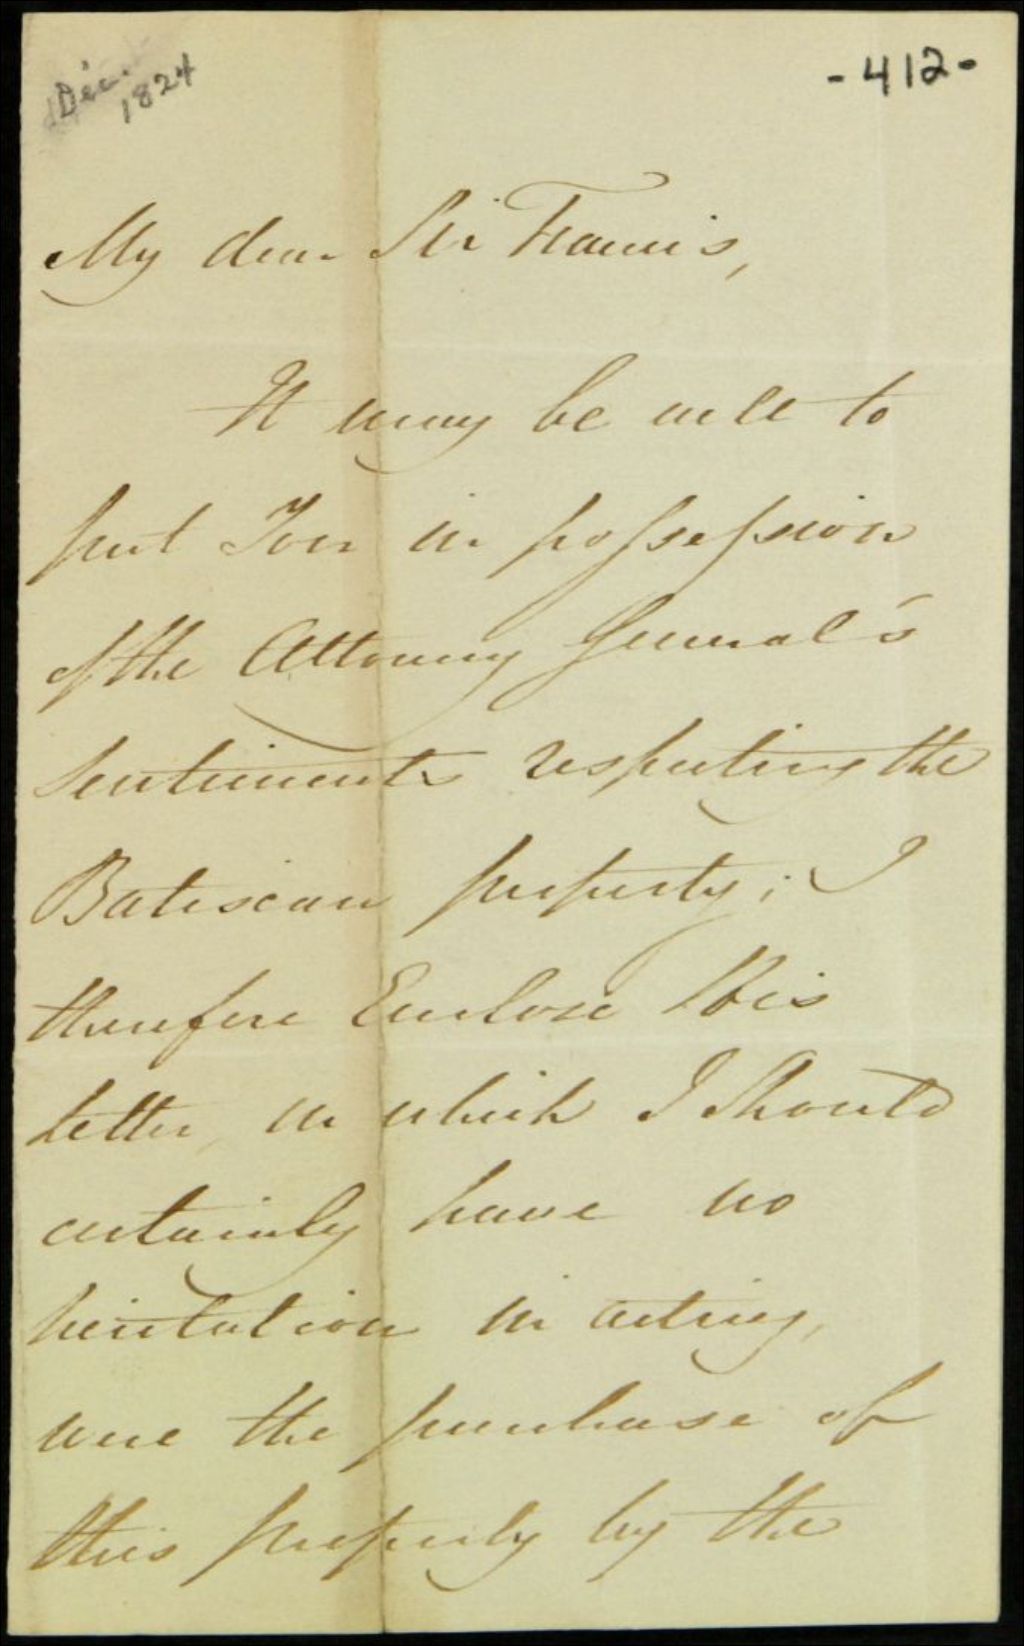 Déc.
1824
-412-
My dear Sir Francis,
It may be well to
put You in possession
of the Attorney General's
Sentiments respecting the
Batiscan property; I
therefore Enclose His
Letter, in which I Should
certainly have no
hesitation in acting,
were the purchase of
this property by the